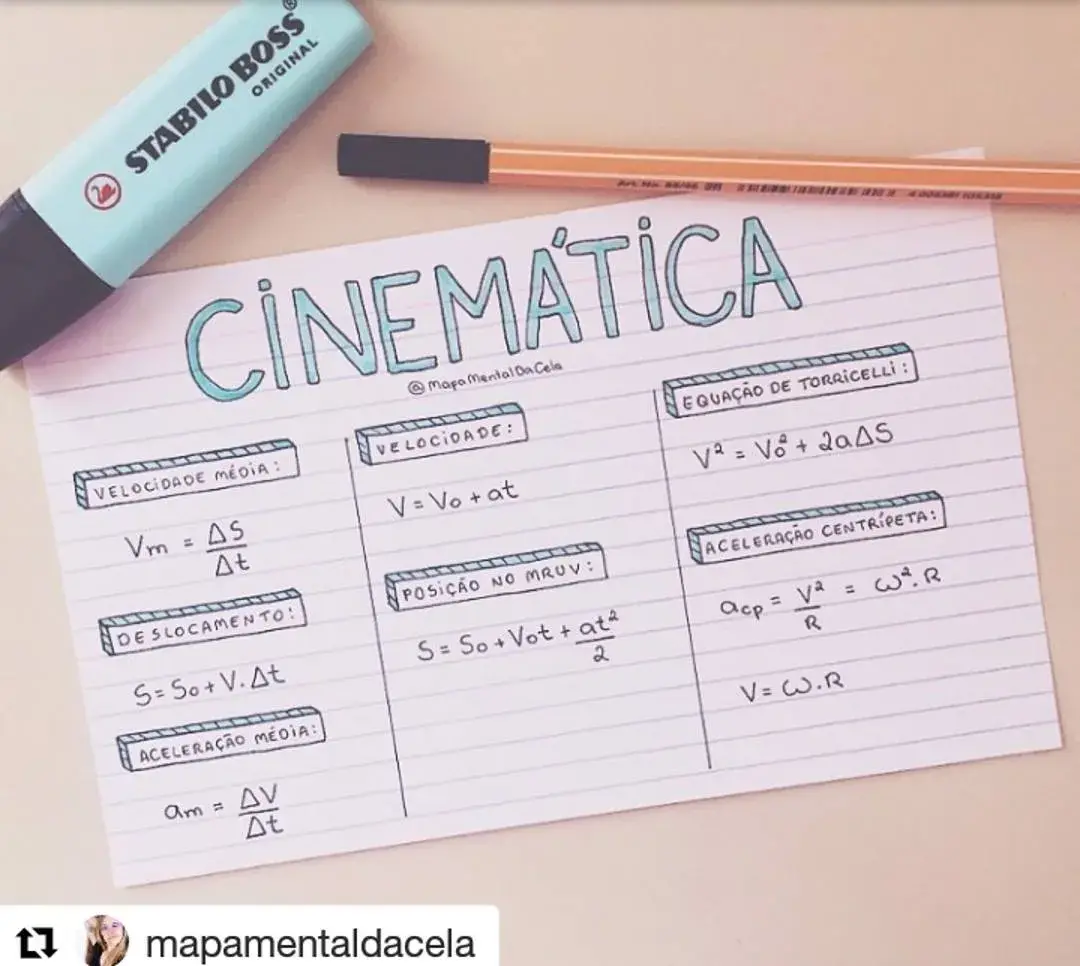 STABILO BOSS®
ORIGINAL
CINEMÁTICA
@MapaMentalDaCela
VELOCIDADE MÉDIA:
Vm = ΔS/Δt
DESLOCAMENTO:
S = So + V.Δt
ACELERAÇÃO MÉDIA:
am = ΔV/Δt
VELOCIDADE:
V = Vo + at
POSIÇÃO NO MRUV:
S = So + Vot + at²/2
EQUAÇÃO DE TORRICELLI:
V² = Vo² + 2aΔS
ACELERAÇÃO CENTRÍPETA:
acp = V²/R = ω².R
V = ω.R
mapamentaldacela